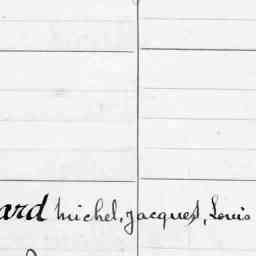 ard Michel, Jacques, Louis